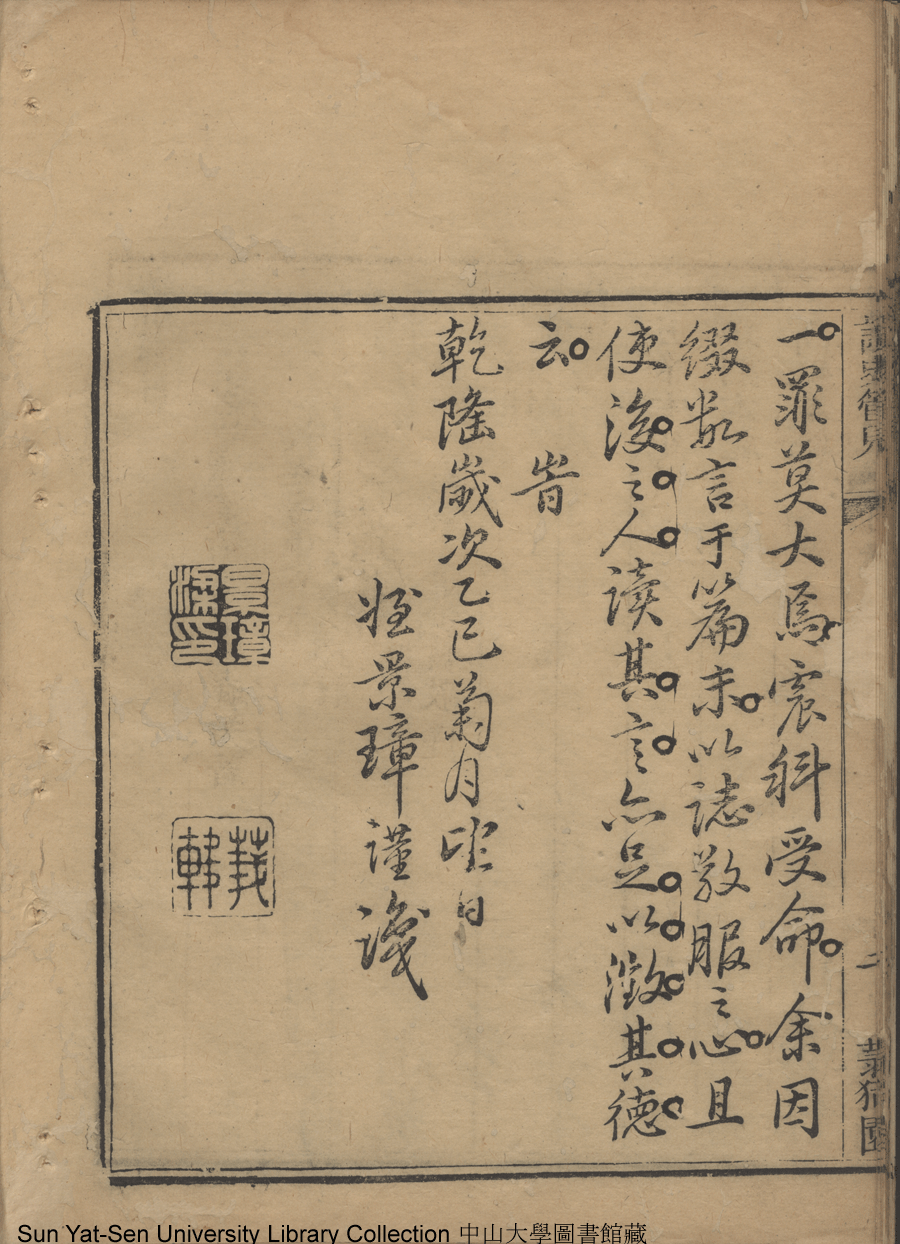 一罪莫大焉震科受命余因
綴數言于篇末以誌敬服之心且
使後之人讀其言亦足以徵其德
云 旹
乾隆歲次乙巳菊月望日
姪景璋謹識
景璋
印
讀史管見
二
Sun Yat-Sen University Library Collection 中山大學圖書館藏